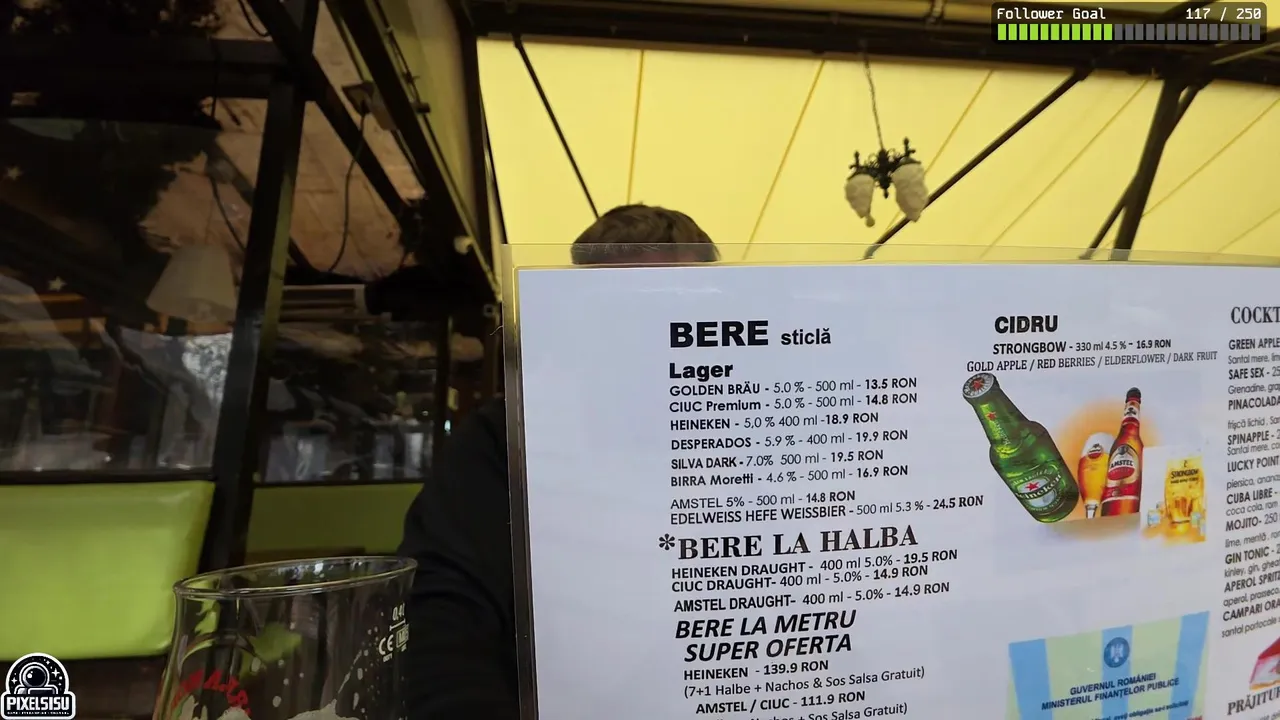 Follower Goal 117 / 250
BERE sticlă
Lager
GOLDEN BRÄU - 5.0 % - 500 ml - 13.5 RON
CIUC Premium - 5.0 % - 500 ml - 14.8 RON
HEINEKEN - 5.0 % 400 ml -18.9 RON
DESPERADOS - 5.9 % - 400 ml - 19.9 RON
SILVA DARK - 7.0% 500 ml - 19.5 RON
BIRRA Moretti - 4.6 % - 500 ml - 16.9 RON
AMSTEL 5% - 500 ml - 14.8 RON
EDELWEISS HEFE WEISSBIER - 500 ml 5.3 % - 24.5 RON
*BERE LA HALBA
HEINEKEN DRAUGHT - 400 ml 5.0% - 19.5 RON
CIUC DRAUGHT- 400 ml - 5.0% - 14.9 RON
AMSTEL DRAUGHT- 400 ml - 5.0% - 14.9 RON
BERE LA METRU
SUPER OFERTA
HEINEKEN - 139.9 RON
(7+1 Halbe + Nachos & Sos Salsa Gratuit)
AMSTEL / CIUC - 111.9 RON
Nachos + Sos Salsa Gratuit)
CIDRU
STRONGBOW - 330 ml 4.5 % - 16.9 RON
GOLD APPLE / RED BERRIES / ELDERFLOWER / DARK FRUIT
Heineken
AMSTEL
STRONGBOW
GUVERNUL ROMÂNIEI
MINISTERUL FINANȚELOR PUBLICE
COCKT
GREEN APPLE
Santal mere, lim
SAFE SEX - 25
Grenadine, gra
PINACOLADA
frișcă lichid, San
SPINAPPLE - 2
Santal mere, co
LUCKY POINT
piersica, anana
CUBA LIBRE -
coca cola, rom
MOJITO- 250
lime, mentă, r
GIN TONIC -
kinley, gin, ghea
APEROL SPRIT
aperol, prosecc
CAMPARI ORA
santal portocale
PRĂJITU
0.4L
CE
PIXELSISU